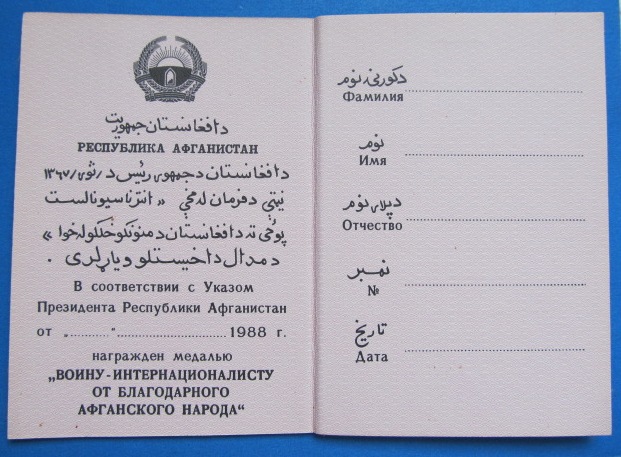 دافغانستان جمهوریت
РЕСПУБЛИКА АФГАНИСТАН
دافغانستان دجمهوری رئیس د / ثوی / ۱۳۶۷
نیټې دفرمان له مخې « انترناسیونالست
پوځي ته دافغانستان دمنونکوخکلوله خوا »
دمدال داخیستلو ویاړلری .
В соответствии с Указом
Президента Республики Афганистан
от „.........." .................. 1988 г.
награжден медалью
„ВОИНУ-ИНТЕРНАЦИОНАЛИСТУ
ОТ БЛАГОДАРНОГО
АФГАНСКОГО НАРОДА“
دکورنۍ نوم
Фамилия
نوم
Имя
دپلار نوم
Отчество
نمبر
№
تاریخ
Дата